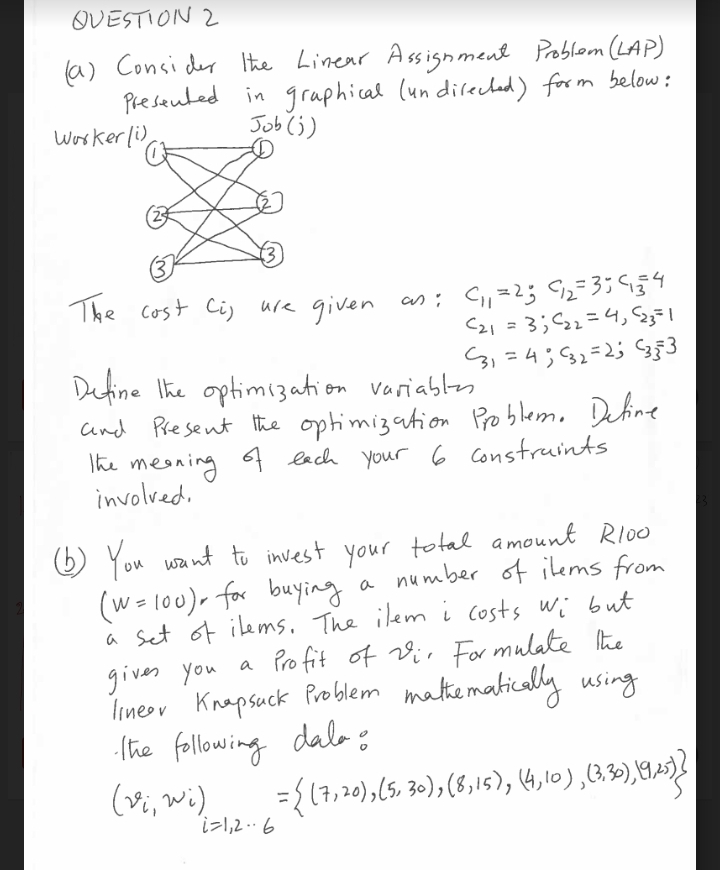 QUESTION 2
(a) Consider the Linear Assignment Problem (LAP)
Presented in graphical (undirected) form below:
Worker(i) Job(j)
1 1
2 2
3 3
The cost Cij are given as: C11=2; C12=3; C13=4
C21 = 3; C22=4, C23=1
C31 = 4; C32=2; C33=3
Define the optimization variables
and Present the optimization Problem. Define
the meaning of each your 6 constraints
involved.
(b) You want to invest your total amount R100
(W=100). for buying a number of items from
a set of items. The item i costs wi but
gives you a Profit of vi. Formulate the
linear Knapsack Problem mathematically using
the following data:
(vi, wi) i=1,2..6 = {(7,20),(5,30),(8,15),(4,10),(3,30),(9,25)}